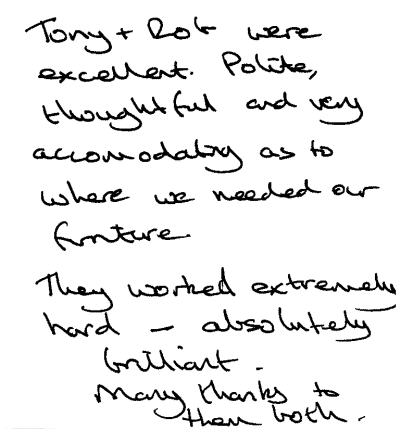 Tony + Rob were
excellent. Polite,
thoughtful and very
accomodating as to
where we needed our
furniture.
They worked extremely
hard – absolutely
brilliant.
Many thanks to
them both.